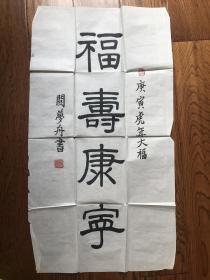 庚寅虎年大福
福壽康寧
闞夢丹書